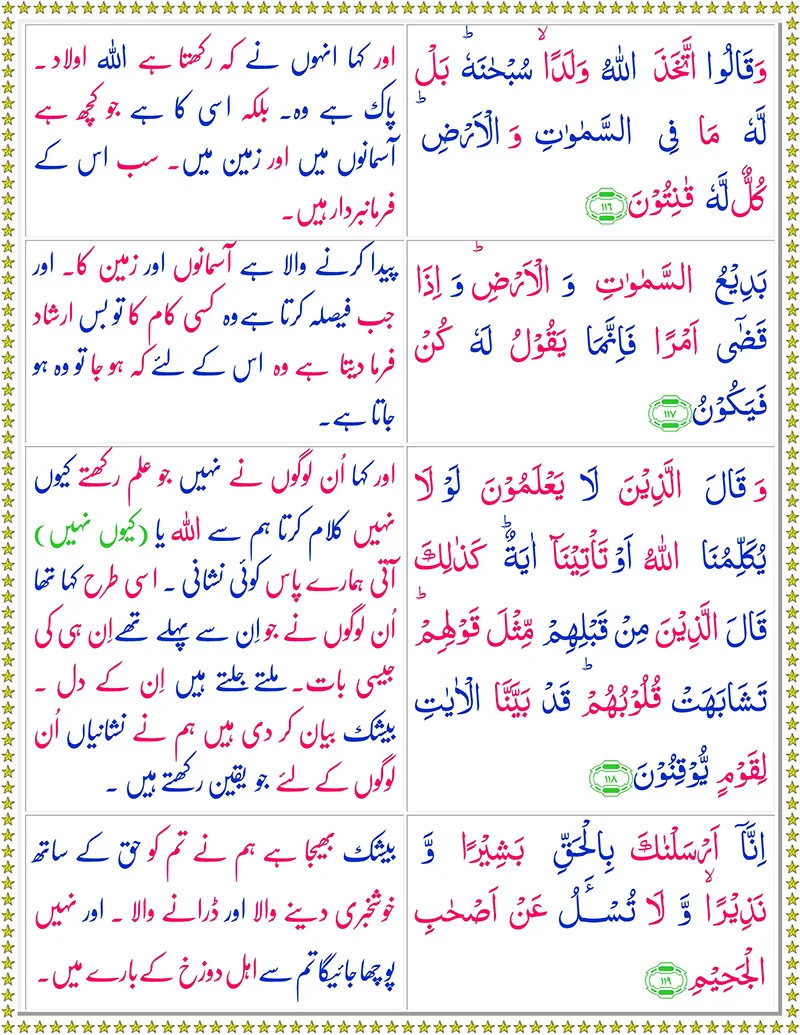 وَقَالُوا اتَّخَذَ اللّٰهُ وَلَدًا ۙ سُبْحٰنَهٗ ؕ بَلْ
لَّهٗ مَا فِی السَّمٰوٰتِ وَ الْاَرْضِ ؕ
كُلٌّ لَّهٗ قٰنِتُوْنَ ۱۱۶
اور کہا انہوں نے کہ رکھتا ہے اللہ اولاد ۔
پاک ہے وہ۔ بلکہ اسی کا ہے جو کچھ ہے
آسمانوں میں اور زمین میں۔ سب اس کے
فرمانبردار ہیں۔
بَدِیْعُ السَّمٰوٰتِ وَ الْاَرْضِ ؕ وَ اِذَا
قَضٰۤی اَمْرًا فَاِنَّمَا یَقُوْلُ لَهٗ كُنْ
فَیَكُوْنُ ۱۱۷
پیدا کرنے والا ہے آسمانوں اور زمین کا۔ اور
جب فیصلہ کرتا ہے وہ کسی کام کا تو بس ارشاد
فرما دیتا ہے وہ اس کے لئے کہ ہو جا تو وہ ہو
جاتا ہے۔
وَ قَالَ الَّذِیْنَ لَا یَعْلَمُوْنَ لَوْ لَا
یُكَلِّمُنَا اللّٰهُ اَوْ تَاْتِیْنَاۤ اٰیَةٌ ؕ كَذٰلِكَ
قَالَ الَّذِیْنَ مِنْ قَبْلِهِمْ مِّثْلَ قَوْلِهِمْ ؕ
تَشَابَهَتْ قُلُوْبُهُمْ ؕ قَدْ بَیَّنَّا الْاٰیٰتِ
لِقَوْمٍ یُّوْقِنُوْنَ ۱۱۸
اور کہا اُن لوگوں نے نہیں جو علم رکھتے کیوں
نہیں کلام کرتا ہم سے اللہ یا (کیوں نہیں)
آتی ہمارے پاس کوئی نشانی ۔ اسی طرح کہا تھا
اُن لوگوں نے جو اِن سے پہلے تھے اِن ہی کی
جیسی بات۔ ملتے جلتے ہیں اِن کے دل ۔
بیشک بیان کر دی ہیں ہم نے نشانیاں اُن
لوگوں کے لئے جو یقین رکھتے ہیں ۔
اِنَّاۤ اَرْسَلْنٰكَ بِالْحَقِّ بَشِیْرًا وَّ
نَذِیْرًا ۙ وَّ لَا تُسْـَٔلُ عَنْ اَصْحٰبِ
الْجَحِیْمِ ۱۱۹
بیشک بھیجا ہے ہم نے تم کو حق کے ساتھ
خوشخبری دینے والا اور ڈرانے والا ۔ اور نہیں
پوچھا جائیگا تم سے اہل دوزخ کے بارے میں۔